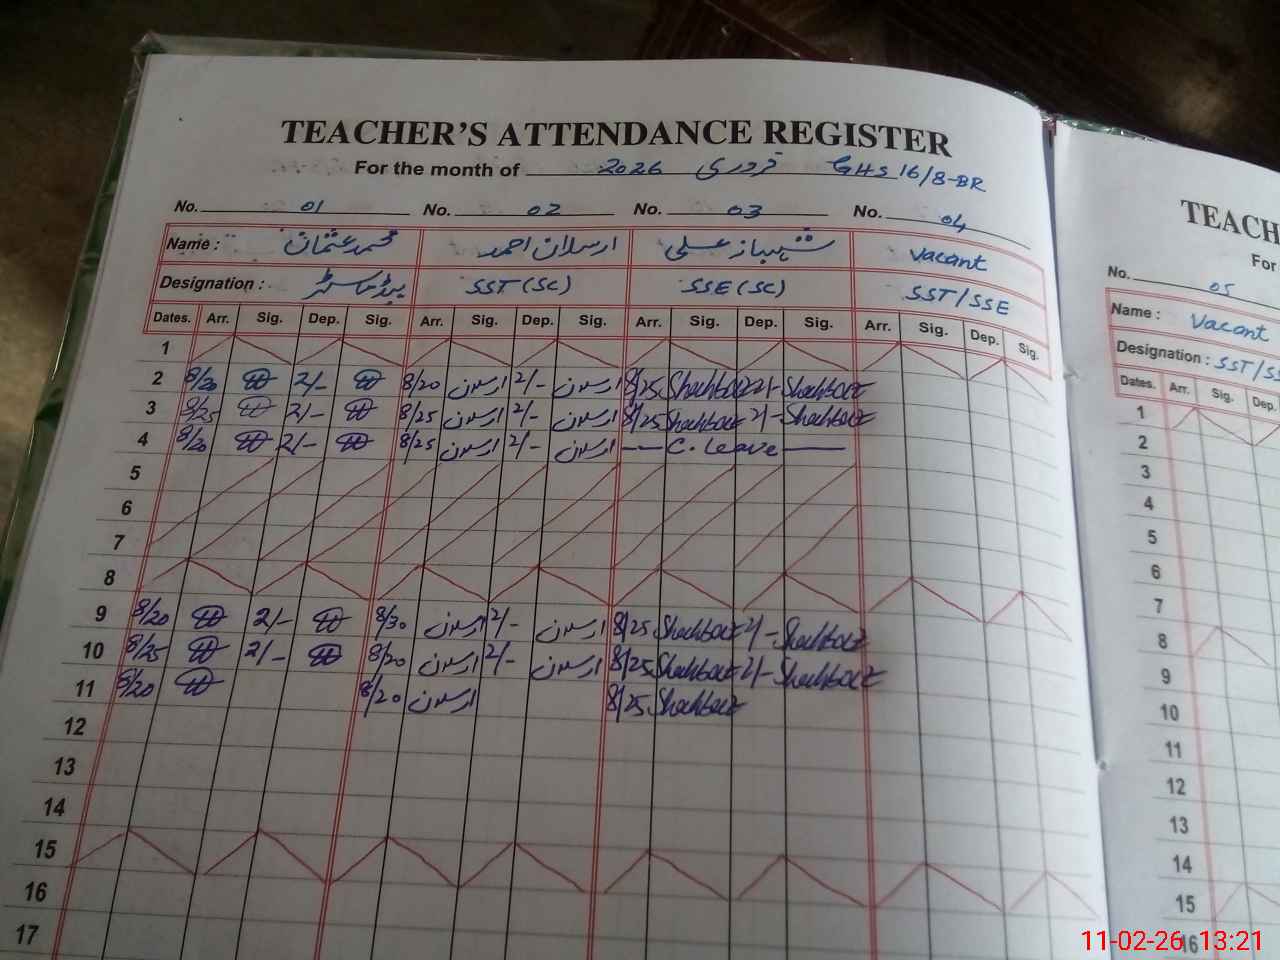 TEACHER'S ATTENDANCE REGISTER
For the month of 2026 فروری GHS 16/8-BR
No. 01 No. 02 No. 03 No. 04
Name : محمد عثمان ارسلان احمد شہباز علی Vacant
Designation : ہیڈ ماسٹر SST (SC) SSE (SC) SST/SSE
Dates. Arr. Sig. Dep. Sig. Arr. Sig. Dep. Sig. Arr. Sig. Dep. Sig. Arr. Sig. Dep. Sig.
1
2 8/20 2/- 8/20 ارسلان 2/- ارسلان 8/25 Shahbaz 2/- Shahbaz
3 8/25 2/- 8/25 ارسلان 2/- ارسلان 8/25 Shahbaz 2/- Shahbaz
4 8/20 2/- 8/25 ارسلان 2/- ارسلان — C. Leave —
5
6
7
8
9 8/20 2/- 8/30 ارسلان 2/- ارسلان 8/25 Shahbaz 2/- Shahbaz
10 8/25 2/- 8/20 ارسلان 2/- ارسلان 8/25 Shahbaz 2/- Shahbaz
11 8/20 8/20 ارسلان 8/25 Shahbaz
12
13
14
15
16
17
TEACH
For
No. 05
Name : Vacant
Designation : SST/SS
Dates. Arr. Sig. Dep.
1
2
3
4
5
6
7
8
9
10
11
12
13
14
15
16
11-02-26 13:21